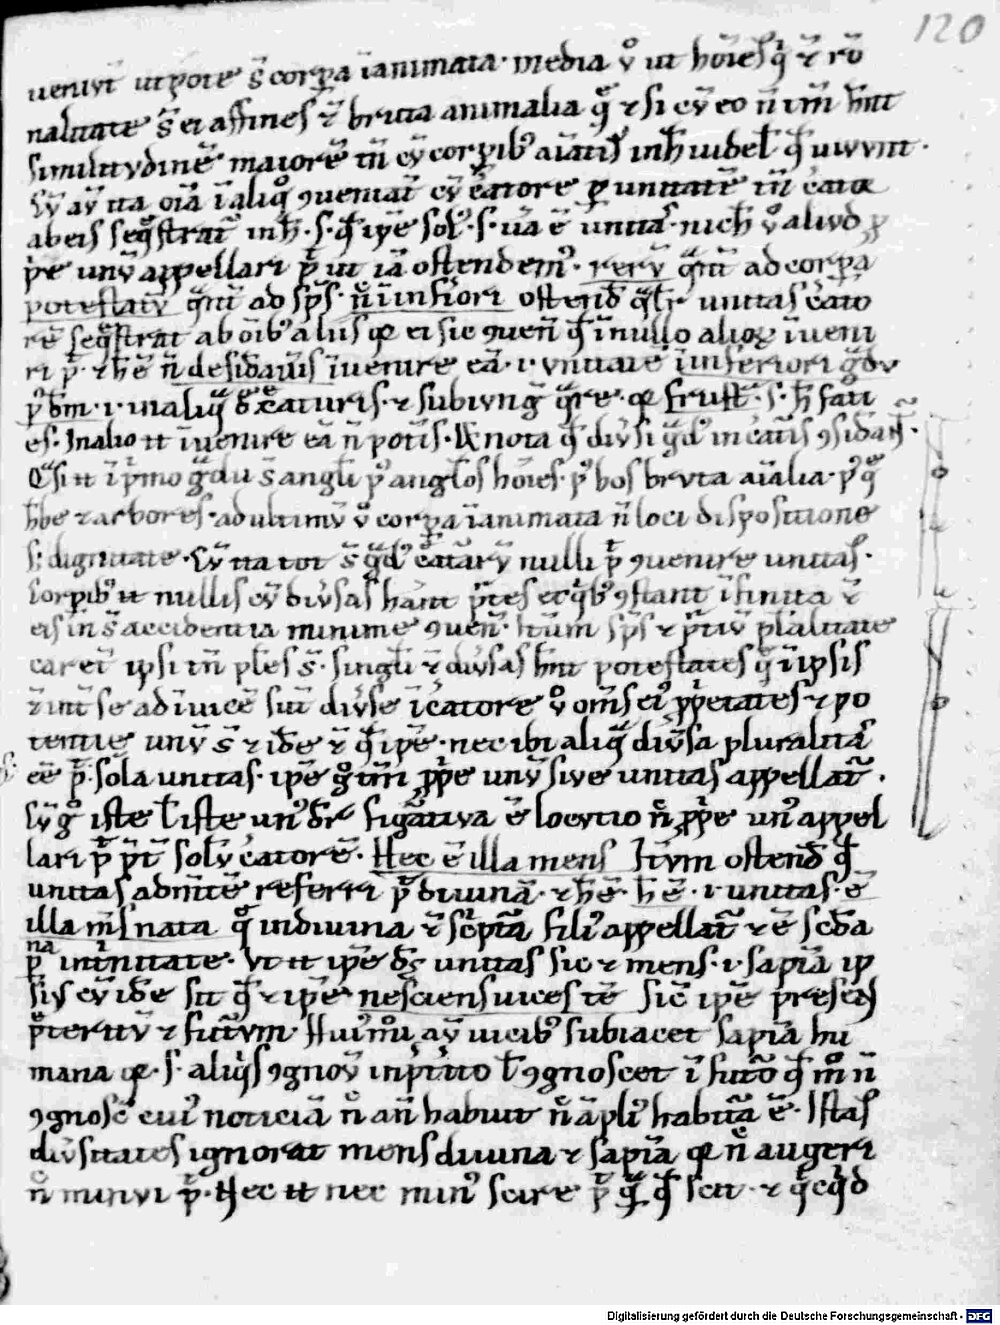 120
ueniūt ut pote s̄ corꝑa īanimata. media v̊ ut hōīes q̄ r̄ rō
nalitate s̄ ei affines r̄ bruta animalia q̄ ⁊ si cv̄ eo n̄ tm̄ hn̄t
similitvdinē maiorē tn̄ cv̄ corꝑibꝰ aīatis inh̄
cv̄ aūt ita oīa ī aliq̊ ꝯueniāt cv̄ c̄atore ꝑ unitatē tn̄ c̄ata
ab eis seq̄strat̄ inh̄ .s. q̄ ipse solꝰ .s. u̅a ē unitas nich̄ v̊ alivd ꝓ
p̄e unv̄ appellari p̄t ut iā ostendemꝰ. rerv̄ q̄ntū ad corꝑa
potestatv̄ q̄ntū ad sp̄s. n̄ ī infiori ostend̄ q̄lr̄ unitas c̄ato
rē seq̄strat ab oībꝰ aliis qꝫ ei sic ꝯuen̄ q̄ in nullo alioꝝ īueni
ri p̄t. ⁊ h̄ ē n̄ desid̄auis īuenire eā .i. vnitatē ī inferiori g̊dv
.i. in aliq̄ c̄aturis. ⁊ subivng̊ q̄re. qꝫ frust̄ .s. h̄ faci
es. In alio n̄ īuenire eā n̄ potis. Et nota q̄ div̄si g̊dꝰ in c̄atis ꝯsidan̄t.
Q̄si n̄ ī p̄mo g̊du s̄ angl̄i pꝰ angl̄os hōīes. pꝰ hos brvta aīalia. pꝰ q̄
h̄be ⁊ arbores. ad ultimv̄ v̊ corꝑa īanimata n̄ loci dispositione
s. dignitate. Cv̄ ita tot s̄ g̊dꝰ c̄atarv̄ nulli p̄t ꝯuenire unitas.
Corꝑibꝰ n̄ nullis cv̄ div̄sas hānt p̄tes ex q̄bꝰ ꝯstant īfinita r̄
eis ins̄ accidentia minime ꝯuen̄. Itm̄ sp̄s ⁊ p̄tiv̄ pl̄alitate
caret̄ ipsi tn̄ pl̄es s̄. singl̄i r̄ div̄sas hn̄t potestates q̄ ī ipsis
r̄ int̄ se ad ī uicē sūt div̄se ī c̄atore v̊ om̄s eiꝰ ꝓp̄etates ⁊ po
tentie unv̄ s̄ ⁊ idē r̄ q̄ ipse. nec ibi aliq̄ div̄sa pluralitas
eē p̄t. sola unitas. ipse g̊ tm̄ ꝓp̄e unv̄ siue unitas appellat̄.
Cv̄ g̊ iste l̄ iste unꝰ dr̄ figatiua ē locvtio n̄ ꝓp̄e unꝰ appel
lari p̄t p̄t solv̄ c̄atorē. Hec ē illa mens Itvm ostend̄ q̄
unitas ad mētē referri p̄t diuinā. ⁊ h̄ ē. h̄ ē .i. unitas. ē
illa m̄s nata q̄ in diuina r̄ sc̄ptā filiꝰ appellat̄ ⁊ ē sc̄da
p̄na in trinitate. Vt n̄ ipse d̄s unitas sic ⁊ mens .i. sapīa ip
siꝰ cv̄ idē sit q̄ ⁊ ipse nesciens uices tē sic̄ ipse p̄sens
p̄teritv̄ ⁊ futvm. Huiꝰmōi aūt uicibꝰ subiacet sapīa hu
mana qꝫ .s. aliq̄s ꝯgnov̄ in p̄tito l̄ ꝯgnoscet ī futō q̄ m̊ n̄
ꝯgnosc̄ cuiꝰ noticiā n̄ añ habuit n̄ āpliꝰ habitā ē. Istas
div̄sitates ignorat mens diuina ⁊ sapīa qꝫ n̄ augeri
n̄ minvi p̄t. Hec n̄ nec minꝰ scire p̄t q̄ q̄ scit. ⁊ q̄cq̄d
Digitalisierung gefördert durch die Deutsche Forschungsgemeinschaft - DFG